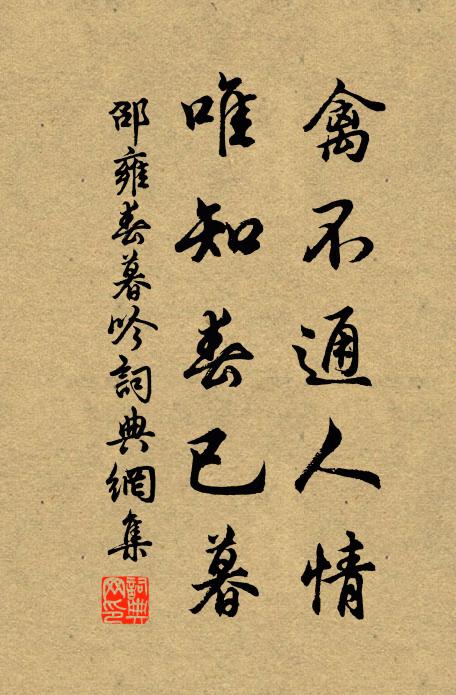 禽不通人情
唯知春已暮
邵雍春暮吟詞典網集
詞典網印